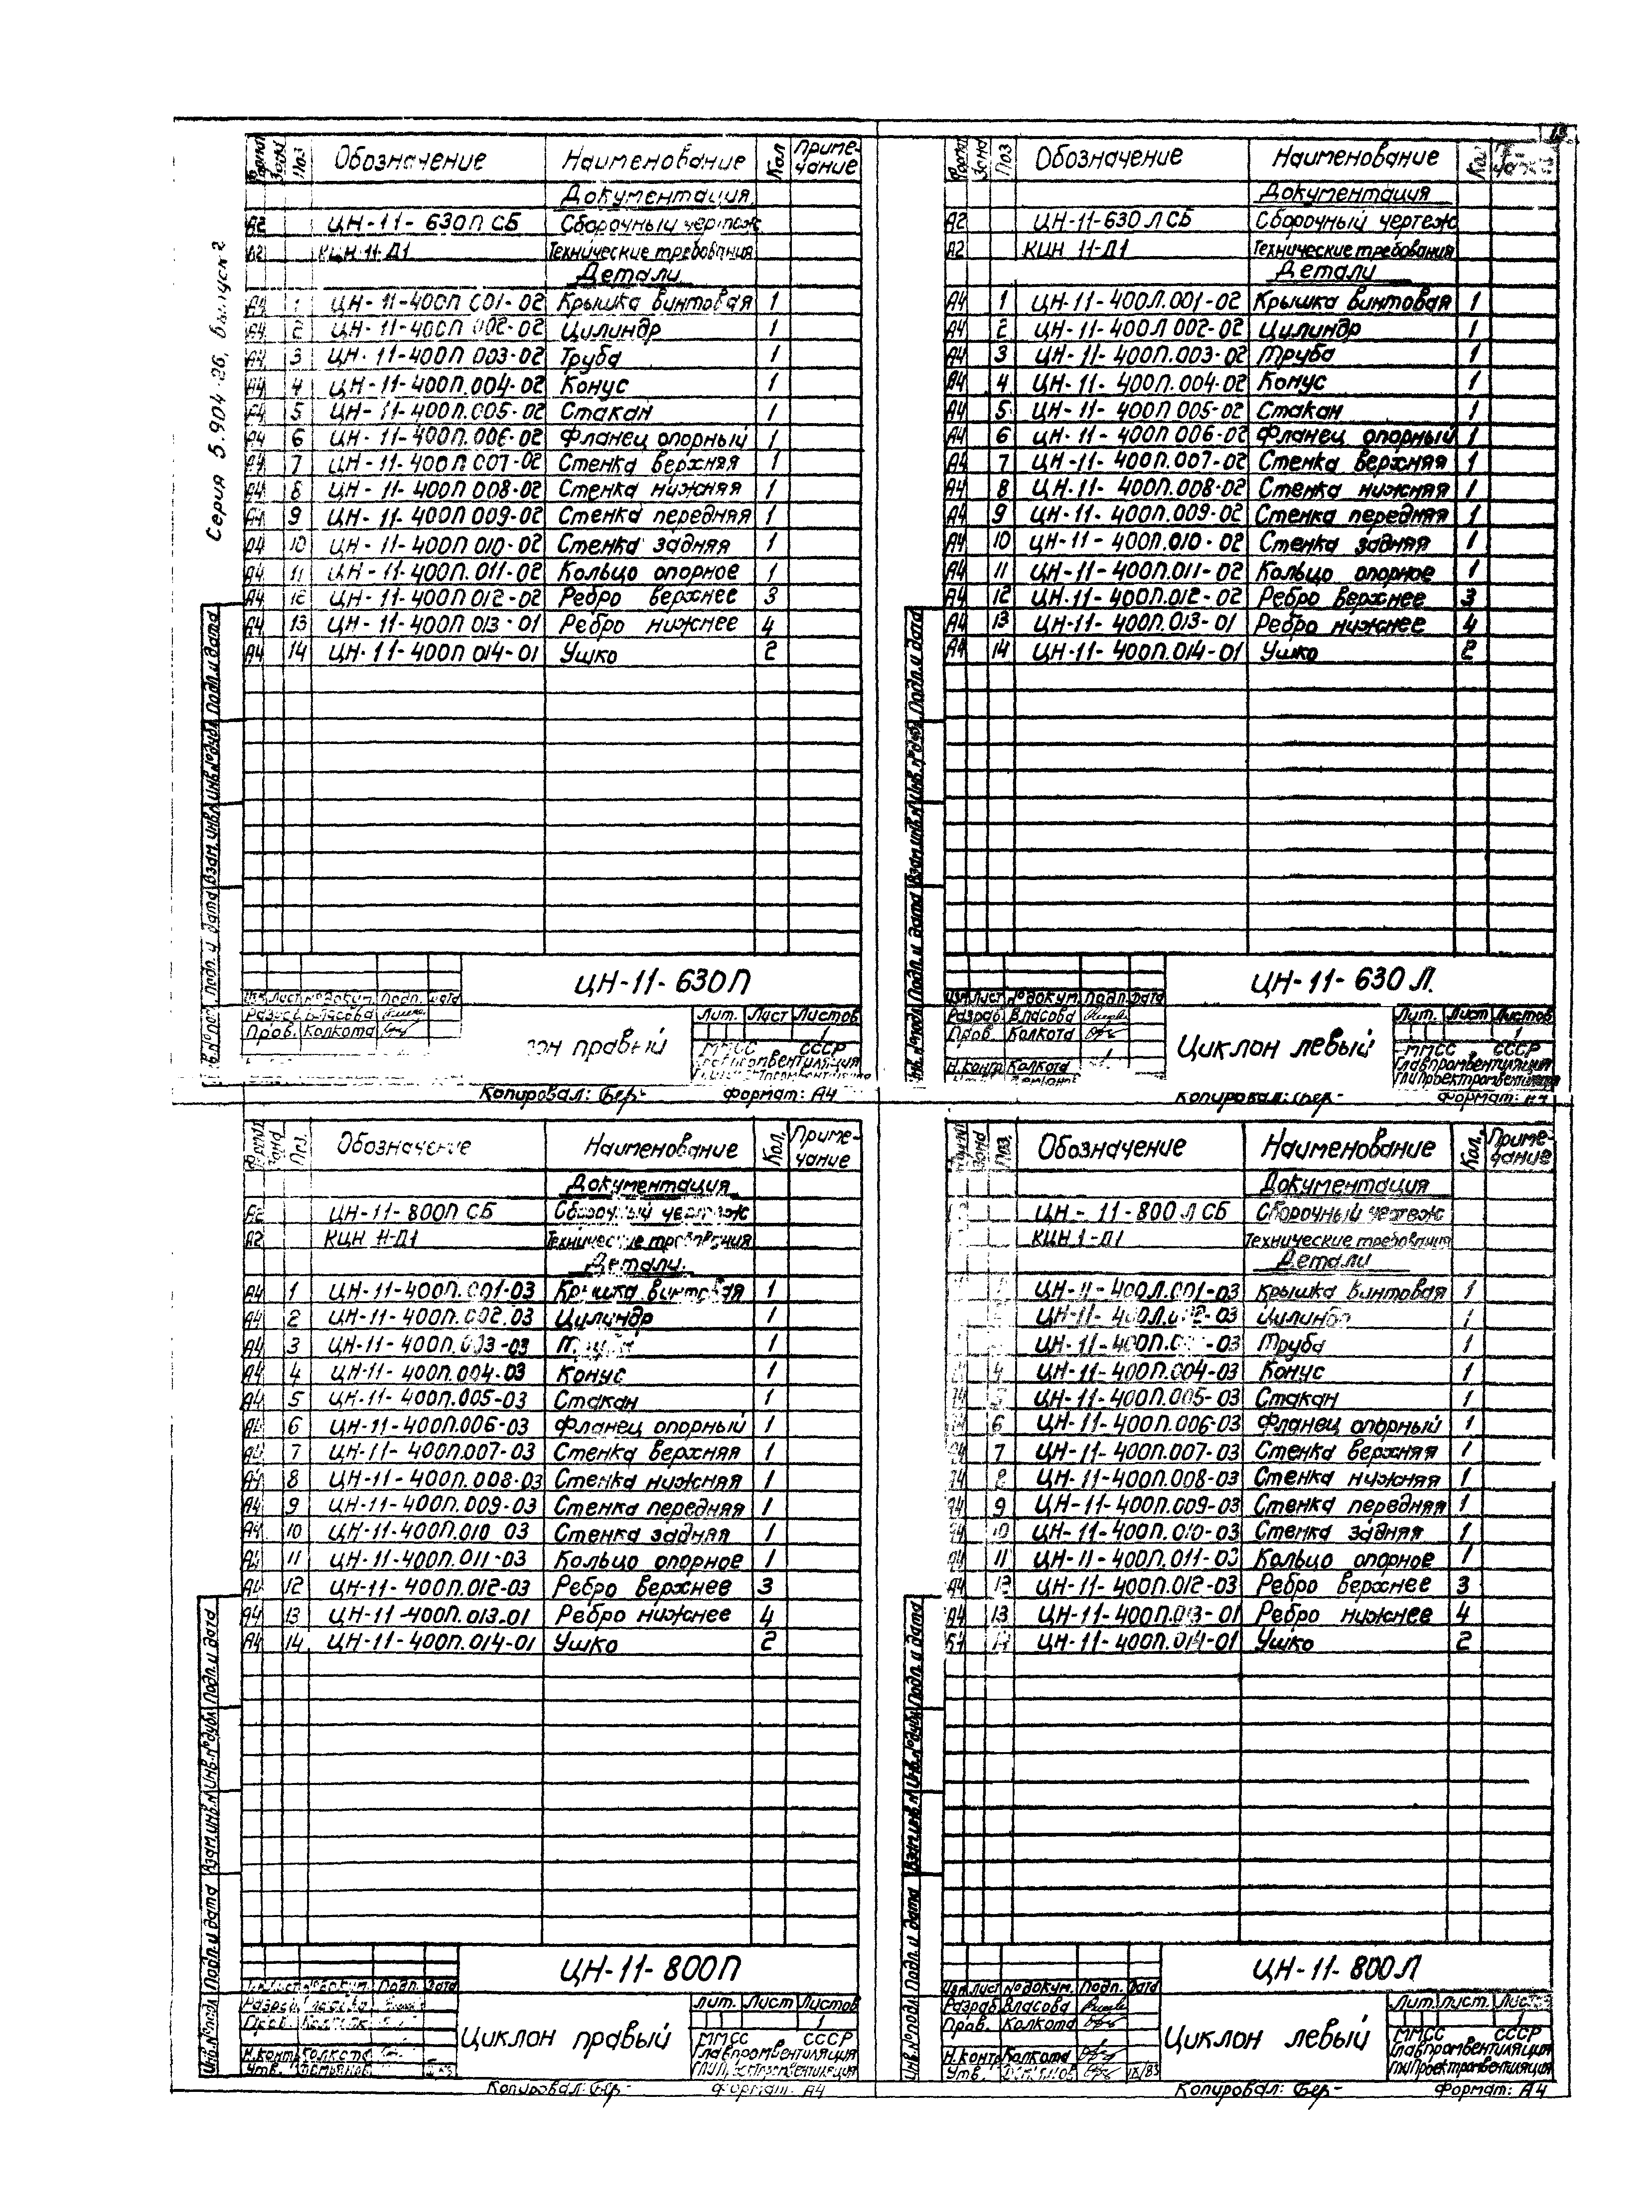 13
Серия 5.904-26, выпуск 2
Формат Зона Поз Обозначение Наименование Кол Приме-чание
Документация
А2 ЦН-11-630П СБ Сборочный чертеж
А2 КЦН-11-Д1 Технические требования
Детали
А4 1 ЦН-11-400П 001-02 Крышка винтовая 1
А4 2 ЦН-11-400П 002-02 Цилиндр 1
А4 3 ЦН-11-400П 003-02 Труба 1
А4 4 ЦН-11-400П.004-02 Конус 1
А4 5 ЦН-11-400П.005-02 Стакан 1
А4 6 ЦН-11-400П.006-02 Фланец опорный 1
А4 7 ЦН-11-400П 007-02 Стенка верхняя 1
А4 8 ЦН-11-400П 008-02 Стенка нижняя 1
А4 9 ЦН-11-400П 009-02 Стенка передняя 1
А4 10 ЦН-11-400П 010-02 Стенка задняя 1
А4 11 ЦН-11-400П.011-02 Кольцо опорное 1
А4 12 ЦН-11-400П 012-02 Ребро верхнее 3
А4 13 ЦН-11-400П 013-01 Ребро нижнее 4
А4 14 ЦН-11-400П 014-01 Ушко 2
Подп. и дата Взам.инв.№ Инв.№дубл. Подп.и дата
ЦН-11-630П
Лист №докум. Подп. Дата
Разраб Власова
Пров. Колкота
он правый
Лит. Лист Листов
1
ММСС СССР
Копировал: Бер- Формат: А4
Формат Зона Поз Обозначение Наименование Кол
Документация
А2 ЦН-11-630Л СБ Сборочный чертеж
А2 КЦН 11-Д1 Технические требования
Детали
А4 1 ЦН-11-400Л.001-02 Крышка винтовая 1
А4 2 ЦН-11-400Л 002-02 Цилиндр 1
А4 3 ЦН-11-400П.003-02 Труба 1
А4 4 ЦН-11-400П.004-02 Конус 1
А4 5 ЦН-11-400П 005-02 Стакан 1
А4 6 ЦН-11-400П 006-02 Фланец опорный 1
А4 7 ЦН-11-400П.007-02 Стенка верхняя 1
А4 8 ЦН-11-400П.008-02 Стенка нижняя 1
А4 9 ЦН-11-400П.009-02 Стенка передняя 1
А4 10 ЦН-11-400П.010-02 Стенка задняя 1
А4 11 ЦН-11-400П.011-02 Кольцо опорное 1
А4 12 ЦН-11-400П.012-02 Ребро верхнее 3
А4 13 ЦН-11-400П.013-01 Ребро нижнее 4
А4 14 ЦН-11-400П.014-01 Ушко 2
Инв.№подл Подп.и дата Взам инв.№ Инв.№дубл Подп.и дата
ЦН-11-630 Л.
Изм Лист №докум. Подп. Дата
Разраб. Власова
Пров. Колкота
Н.контр Колкота
Циклон левый
Лит. Лист Листов
1
ММСС СССР
Главпромвентиляция
ГПИПроектпромвентиляция
Копировал: Бер- Формат: А4
Формат Зона Поз. Обозначение Наименование Кол. Приме-чание
Документация
А2 ЦН-11-800П СБ Сборочный чертеж
А2 КЦН 11-Д1 Технические требования
Детали.
А4 1 ЦН-11-400П.001-03 Крышка винтовая 1
А4 2 ЦН-11-400П.002.03 Цилиндр 1
А4 3 ЦН-11-400П.003-03 1
А4 4 ЦН-11-400П.004-03 Конус 1
А4 5 ЦН-11-400П.005-03 Стакан 1
А4 6 ЦН-11-400П.006-03 Фланец опорный 1
А4 7 ЦН-11-400П.007-03 Стенка верхняя 1
А4 8 ЦН-11-400П.008-03 Стенка нижняя 1
А4 9 ЦН-11-400П.009-03 Стенка передняя 1
А4. 10 ЦН-11-400П.010 03 Стенка задняя 1
А4 11 ЦН-11-400П.011-03 Кольцо опорное 1
А4 12 ЦН-11-400П.012-03 Ребро верхнее 3
А4 13 ЦН-11-400П.013.01 Ребро нижнее 4
А4 14 ЦН-11-400П.014-01 Ушко 2
Инв.№подл Подп.и дата Взам.инв.№ Инв.№дубл Подп.и дата
ЦН-11-800П
Подп. Дата
Разраб
Н.контр Колкота
Утв.
Циклон правый
Лит. Лист Листов
1
ММСС СССР
Главпромвентиляция
Копировал: Бер- Формат: А4
Зона Поз. Обозначение Наименование Кол. Приме-чание
Документация
ЦН-11-800Л СБ Сборочный чертеж
Технические требования
Детали
ЦН-11-400Л.001-03 Крышка винтовая 1
ЦН-11-400Л.002-03 Цилиндр 1
Труба 1
4 ЦН-11-400П.004-03 Конус 1
ЦН-11-400П.005-03 Стакан 1
6 ЦН-11-400П.006-03 Фланец опорный 1
А4 7 ЦН-11-400П.007-03 Стенка верхняя 1
А4 8 ЦН-11-400П.008-03 Стенка нижняя 1
А4 9 ЦН-11-400П.009-03 Стенка передняя 1
А4 10 ЦН-11-400П.010-03 Стенка задняя 1
А4 11 ЦН-11-400П.011-03 Кольцо опорное 1
А4 12 ЦН-11-400П.012-03 Ребро верхнее 3
А4 13 ЦН-11-400П.013-01 Ребро нижнее 4
14 ЦН-11-400П.014-01 Ушко 2
Инв.№подл Подп.и дата Взам.инв.№ Инв.№дубл Подп.и дата
ЦН-11-800Л
Изм Лист №докум. Подп. Дата
Разраб Власова
Пров. Колкота
Н.контр Колкота
Утв. IX/83
Циклон левый
Лит. Лист. Листов
1
ММСС СССР
Главпромвентиляция
ГПИПроектпромвентиляция
Копировал: Бер- Формат: А4